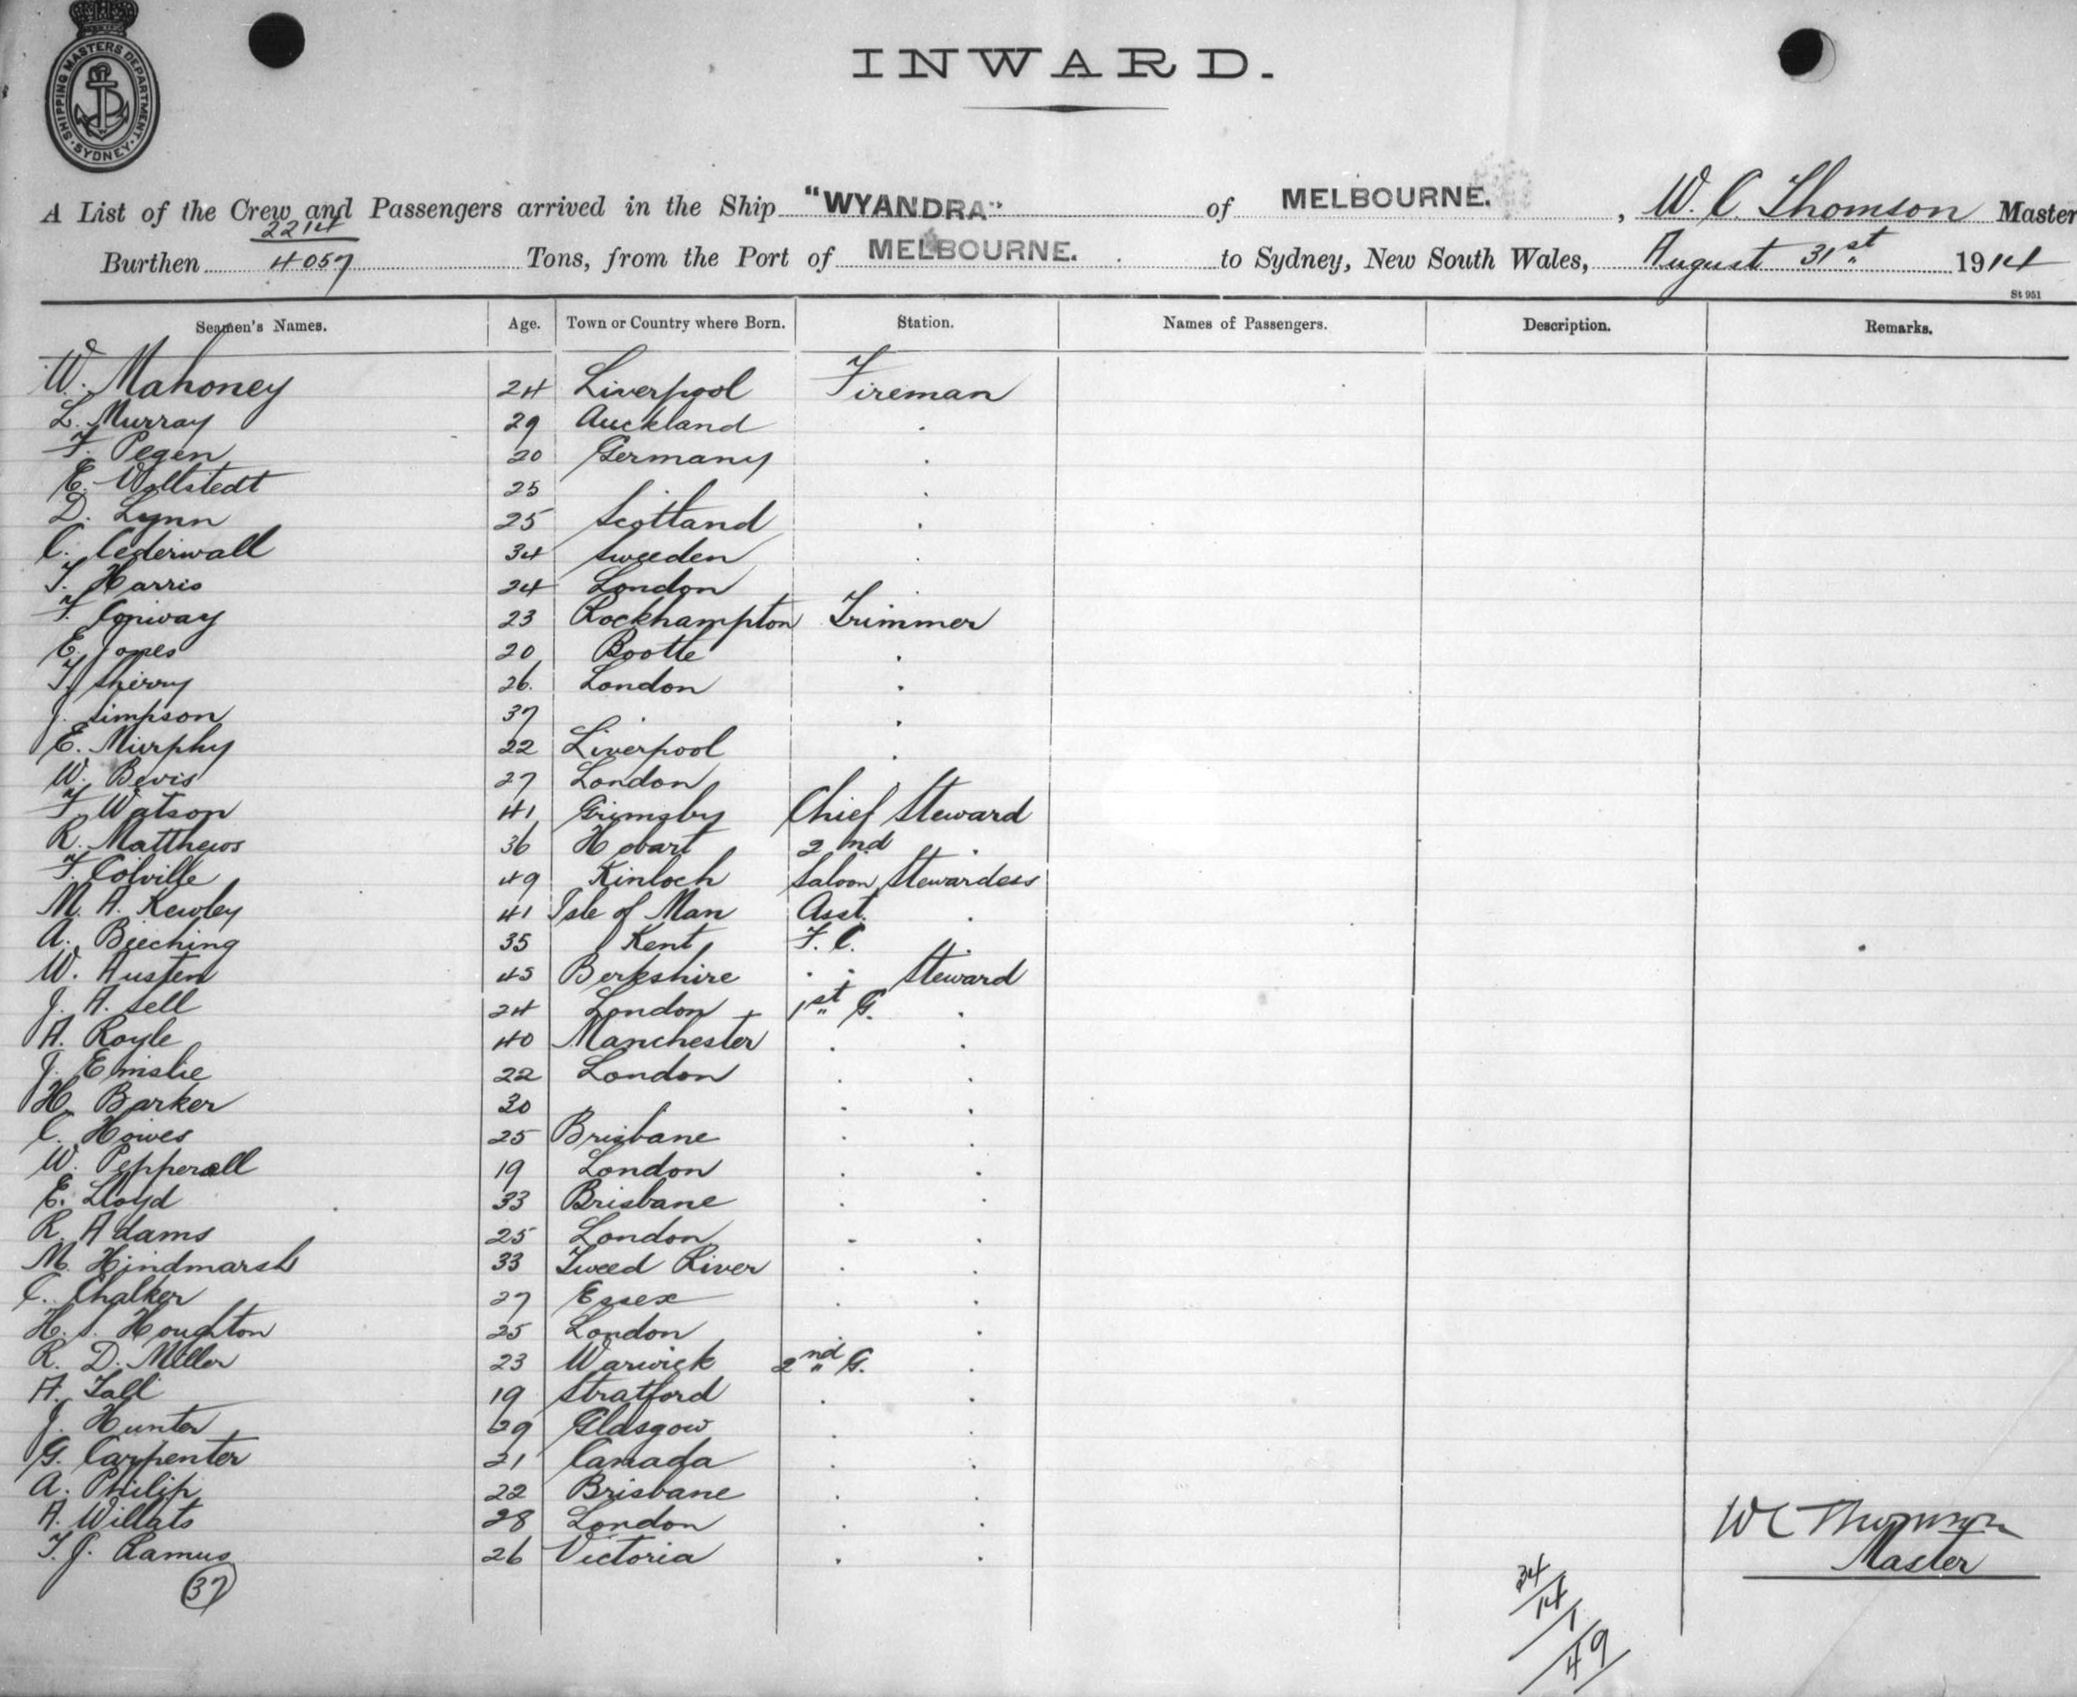 SHIPPING MASTERS DEPARTMENT
SYDNEY
INWARD.
A List of the Crew and Passengers arrived in the Ship "WYANDRA" of MELBOURNE. , W. C. Thomson Master
2214
Burthen 4057 Tons, from the Port of MELBOURNE. to Sydney, New South Wales, August 31st 1914
St 951
Seamen's Names. Age. Town or Country where Born. Station. Names of Passengers. Description. Remarks.
W. Mahoney 24 Liverpool Fireman
L. Murray 29 Auckland .
F. Pegen 20 Germany .
E. Wollstedt 25 . .
D. Lynn 25 Scotland .
C. Cederwall 34 Sweeden .
T. Harris 24 London .
F. Conway 23 Rockhampton Trimmer
E. Jones 20 Bootle .
T. Sherry 26. London .
J. Simpson 37 . .
E. Murphy 22 Liverpool .
W. Bevis 27 London .
F. Watson 41 Grimsby Chief Steward
R. Matthews 36 Hobart 2nd .
F. Colville 49 Kinloch Saloon Stewardess
M. A. Kewley 41 Isle of Man Asst. .
A. Beeching 35 Kent F. C. .
W. Austen 45 Berkshire . . Steward
J. A. Sell 24 London 1st G. .
A. Royle 40 Manchester . .
J. Emslie 22 London . .
H. Barker 30 . . .
C. Howes 25 Brisbane . .
W. Pepperall 19 London . .
E. Lloyd 33 Brisbane . .
R. Adams 25 London . .
M. Hindmarsh 33 Tweed River . .
C. Chalker 27 Essex . .
H. S. Houghton 25 London . .
R. D. Miller 23 Warwick 2nd G. .
A. Tall 19 Stratford . .
J. Hunter 29 Glasgow . .
G. Carpenter 21 Canada . .
A. Philip 22 Brisbane . .
A. Willats 28 London . .
T. J. Ramus 26 Victoria . .
37
W C Thomson
Master
34
14
1
49